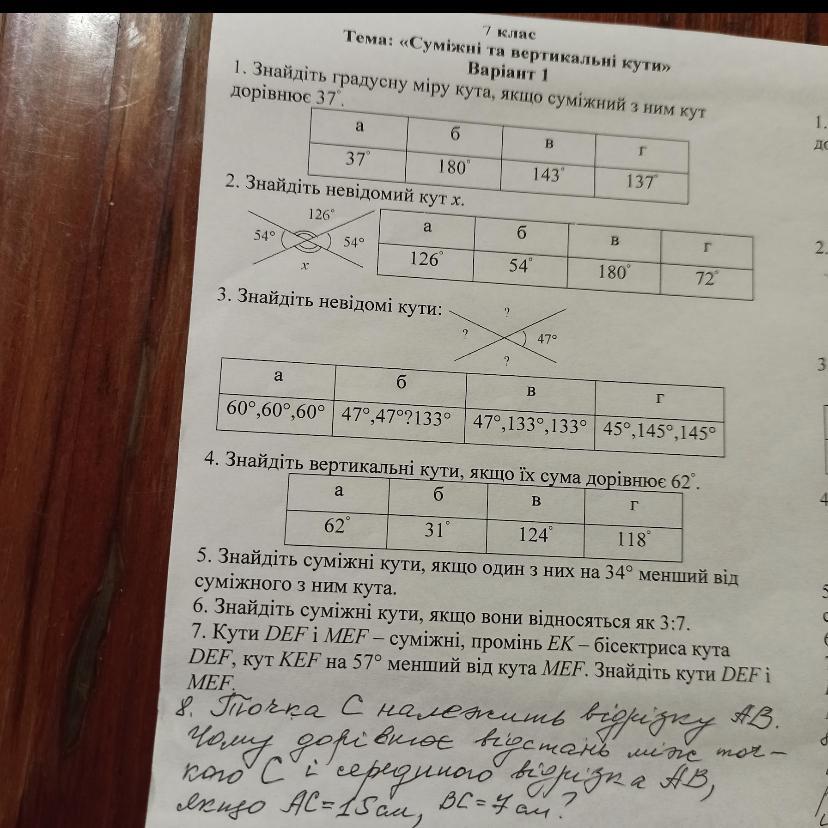 7 клас
Тема: «Суміжні та вертикальні кути»
Варіант 1
1. Знайдіть градусну міру кута, якщо суміжний з ним кут
дорівнює 37°.
а б в г
37° 180° 143° 137°
2. Знайдіть невідомий кут х.
126°
54° 54°
x
а б в г
126° 54° 180° 72°
3. Знайдіть невідомі кути:
?
? 47°
?
а б в г
60°,60°,60° 47°,47°?133° 47°,133°,133° 45°,145°,145°
4. Знайдіть вертикальні кути, якщо їх сума дорівнює 62°.
а б в г
62° 31° 124° 118°
5. Знайдіть суміжні кути, якщо один з них на 34° менший від
суміжного з ним кута.
6. Знайдіть суміжні кути, якщо вони відносяться як 3:7.
7. Кути DEF і MEF – суміжні, промінь EK – бісектриса кута
DEF, кут KEF на 57° менший від кута MEF. Знайдіть кути DEF і
MEF.
8. Точка С належить відрізку АВ.
Чому дорівнює відстань між точ-
кою С і серединою відрізка АВ,
якщо АС=15см, ВС=7см?
1.
2.
3
4